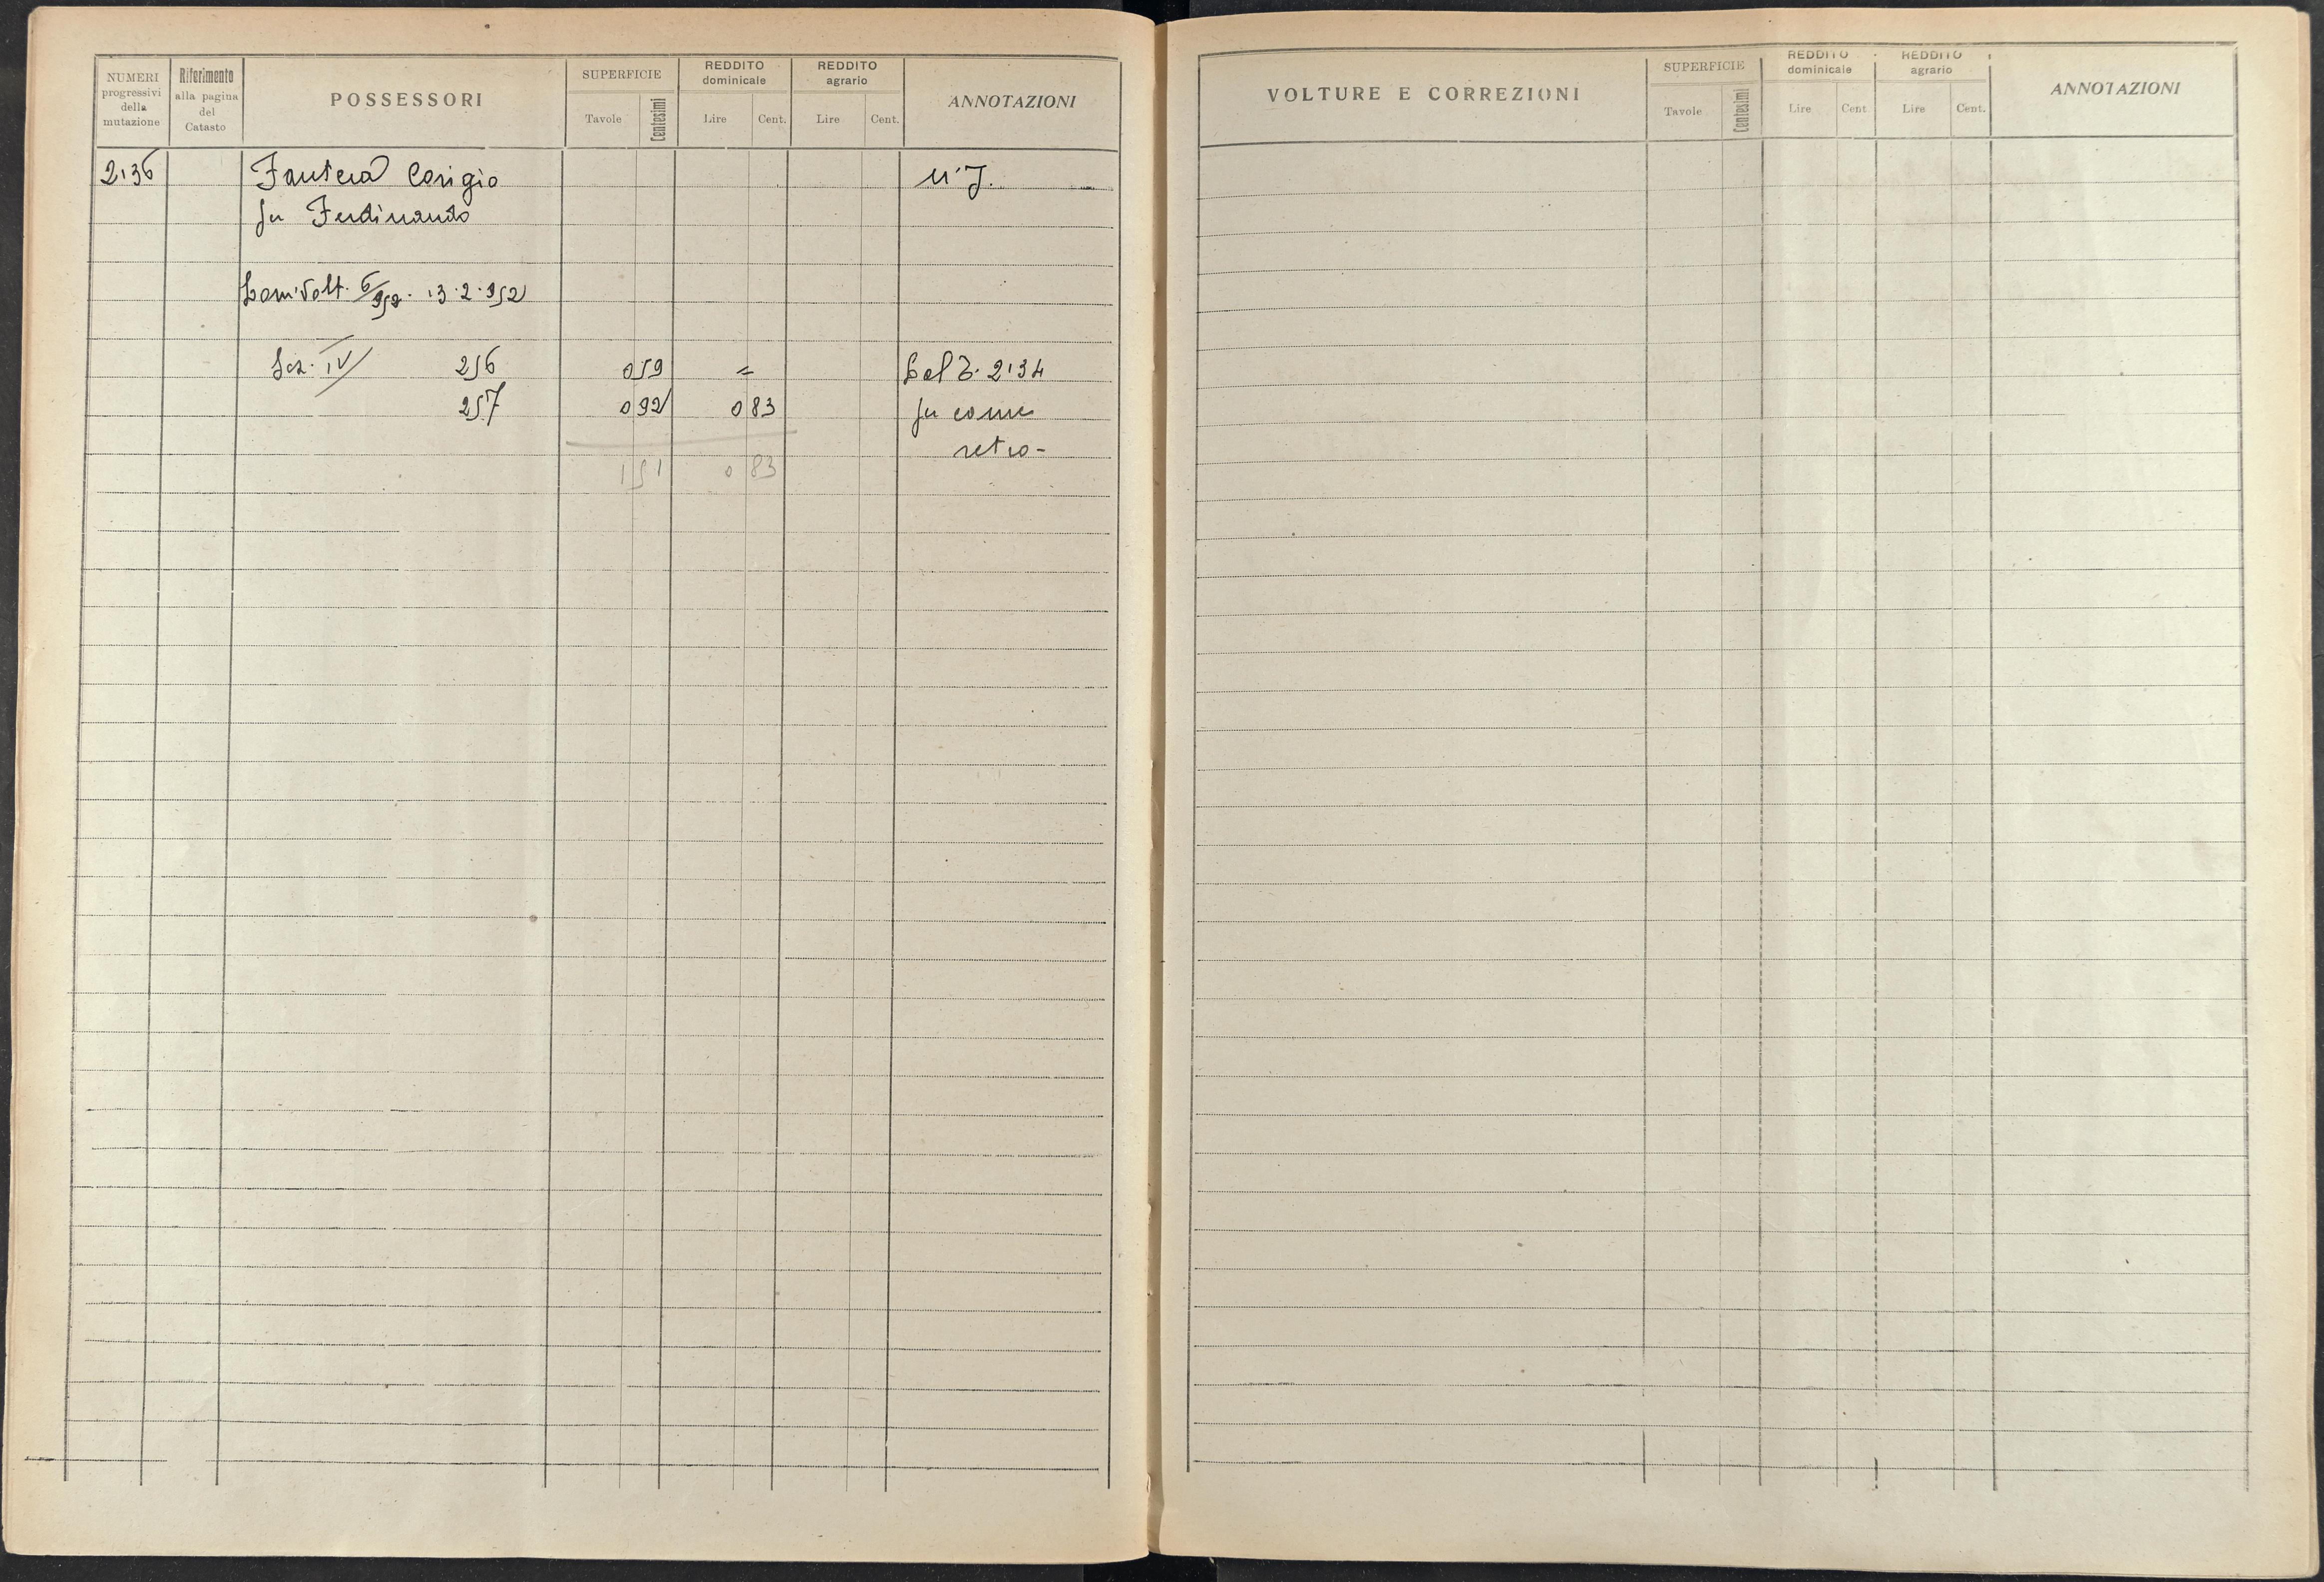 NUMERI progressivi della mutazione
Riferimento alla pagina del Catasto
POSSESSORI
SUPERFICIE
Tavole Centesimi
REDDITO dominicale
Lire Cent.
REDDITO agrario
Lire Cent.
ANNOTAZIONI
2136 Fantera Corigio N. I.
fu Ferdinando
Dom. Volt. 6/952. 13.2.952
Sez. IV 256 0 59 = Dal P. 2134
257 0 92 0 83 fu come
retro-
1 51 0 83
VOLTURE E CORREZIONI
SUPERFICIE
Tavole Centesimi
REDDITO dominicale
Lire Cent
REDDITO agrario
Lire Cent.
ANNOTAZIONI